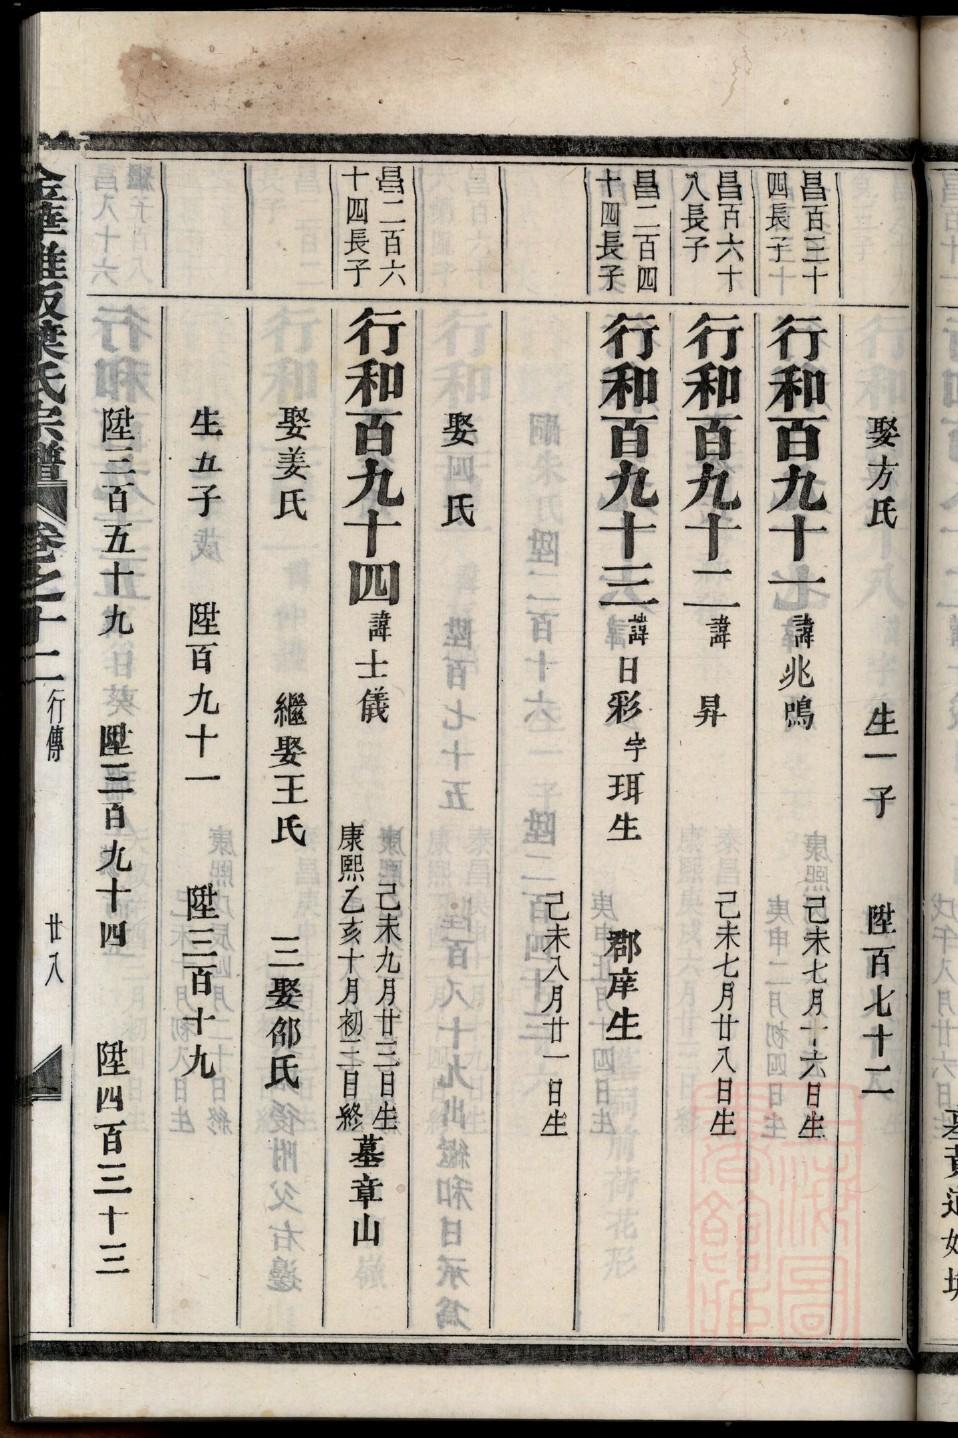 娶方氏 生一子 陞百七十二
昌百三十四長子
行和百九十一 諱兆鳴 己未七月十六日生
昌百六十八長子
行和百九十二 諱昇 己未七月廿八日生
昌二百四十四長子
行和百九十三 諱日彩 字珥生 郡庠生
己未八月廿一日生
娶四氏
昌二百六十四長子
行和百九十四 諱士儀 己未九月廿三日生 康熙乙亥十月初三日終 墓章山
娶姜氏 繼娶王氏 三娶邵氏
生五子 陞百九十一 陞三百十九
陞三百五十九 陞三百九十四 陞四百三十三
葉氏宗譜 卷之十二 行傳 廿八